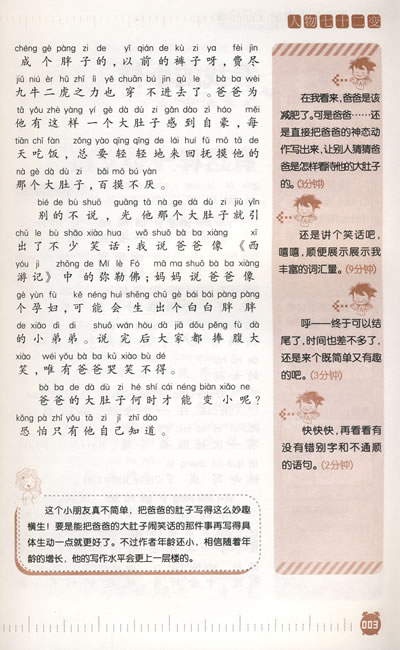 人物七十二变
chéng gè pàng zi de yǐ qián de kù zi ya fèi jìn
成个胖子的，以前的裤子呀，费尽
jiǔ niú èr hǔ zhī lì yě chuān bú jìn qù le bà ba wèi
九牛二虎之力也穿不进去了。爸爸为
tā yǒu zhè yàng yí gè dà dù zi gǎn dào zì háo měi
他有这样一个大肚子感到自豪，每
tiān chī fàn zǒng yào qīng qīng de lái huí fǔ mō tā de
天吃饭，总要轻轻地来回抚摸他的
nà gè dà dù zi bǎi mō bú yàn
那个大肚子，百摸不厌。
bié de bù shuō guāng tā nà ge dà dù zi jiù yǐn
别的不说，光他那个大肚子就引
chū le bù shǎo xiào hua wǒ shuō bà ba xiàng xī
出了不少笑话：我说爸爸像《西
yóu jì zhōng de Mí lè Fó mā ma shuō bà ba xiàng
游记》中的弥勒佛；妈妈说爸爸像
gè yùn fù kě néng huì shēng chū gè bái bái pàng pàng
个孕妇，可能会生出个白白胖胖
de xiǎo dì di shuō wán hòu dà jiā dōu pěng fù dà
的小弟弟。说完后大家都捧腹大
xiào wéi yǒu bà ba kū xiào bù dé
笑，唯有爸爸哭笑不得。
bà ba de dà dù zi hé shí cái néng biàn xiǎo ne
爸爸的大肚子何时才能变小呢？
kǒng pà zhǐ yǒu tā zì jǐ zhī dào
恐怕只有他自己知道。
这个小朋友真不简单，把爸爸的肚子写得这么妙趣
横生！要是能把爸爸的大肚子闹笑话的那件事再写得具
体生动一点就更好了。不过作者年龄还小，相信随着年
龄的增长，他的写作水平会更上一层楼的。
在我看来，爸爸是该
减肥了。可是爸爸……还
是直接把爸爸的神态动
作写出来，让别人猜猜爸
爸是怎样看待他的大肚子
的。(3分钟)
还是讲个笑话吧，
嘻嘻，顺便展示展示我
丰富的词汇量。(9分钟)
呼——终于可以结
尾了，时间也差不多了，
还是来个既简单又有趣
的吧。(3分钟)
快快快，再看看有
没有错别字和不通顺
的语句。(2分钟)
003